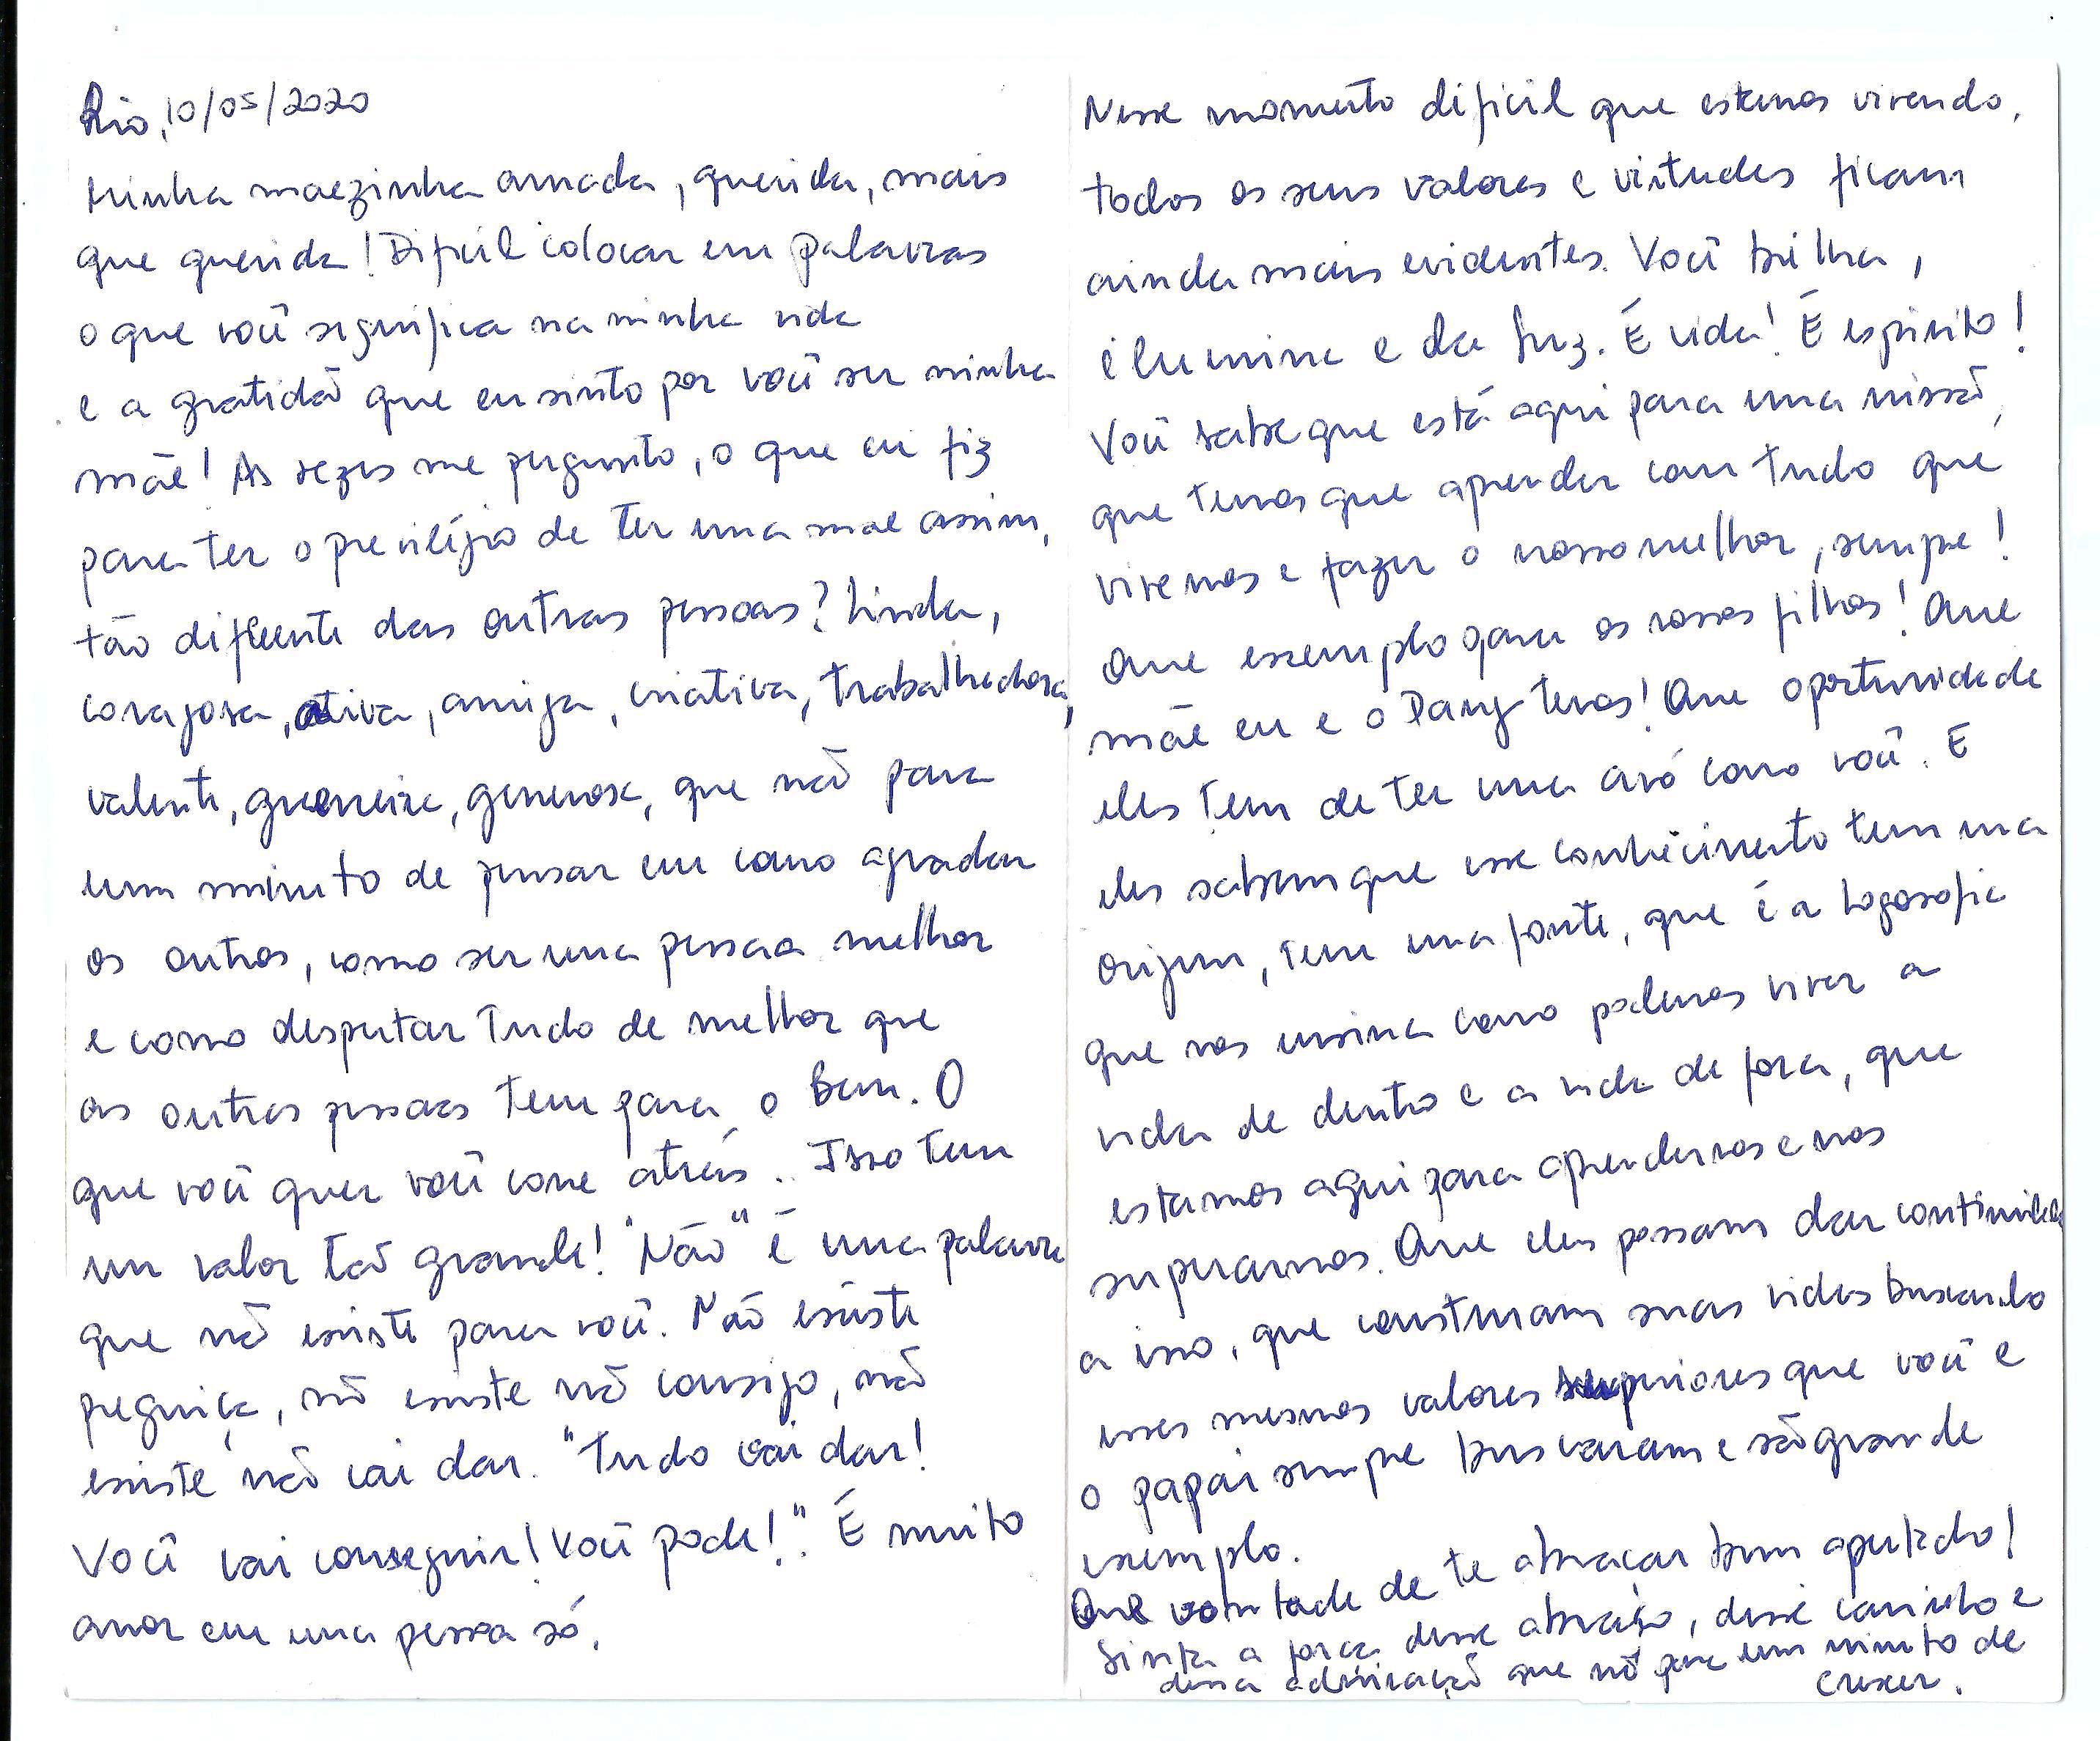 Rio, 10/05/2020
Minha maezinha amada, querida, mais
que querida! Difícil colocar em palavras
o que você significa na minha vida
e a gratidão que eu sinto por você ser minha
mãe! As vezes me pergunto, o que eu fiz
para ter o previlégio de ter uma mãe assim,
tão diferente das outras pessoas? Linda,
corajosa, ativa, amiga, criativa, trabalhadora,
valente, guerreira, generosa, que não para
um minuto de pensar em como agradar
os outros, como ser uma pessoa melhor
e como despertar tudo de melhor que
as outras pessoas tem para o Bem. O
que você quer você corre atrás. Isso tem
um valor tão grande! "Não" é uma palavra
que não existe para você. Não existe
preguiça, não existe não consigo, não
existe não vai dar. "Tudo vai dar!
Você vai conseguir! Você pode!". É muito
amor em uma pessoa só.
Nesse momento difícil que estamos vivendo,
todos os seus valores e virtudes ficam
ainda mais evidentes. Você brilha,
ilumina e da luz. É vida! É espírito!
Você sabe que está aqui para uma missão,
que temos que aprender com tudo que
vivemos e fazer o nosso melhor, sempre!
Que exemplo para os nossos filhos! Que
mãe eu e o Dany temos! Que oportunidade
eles tem de ter uma avó como você. E
eles sabem que esse conhecimento tem uma
origem, tem uma fonte, que é a Logosofia
que nos ensina como podemos viver a
vida de dentro e a vida de fora, que
estamos aqui para aprendermos e nos
superarmos. Que eles possam dar continuidade
a isso, que construam suas vidas buscando
esses mesmos valores superiores que você e
o papai sempre buscaram e são grande
exemplo.
Que vontade de te abraçar bem apertado!
Sinta a força desse abraço, desse carinho e
dessa admiração que não para um minuto de
crescer.